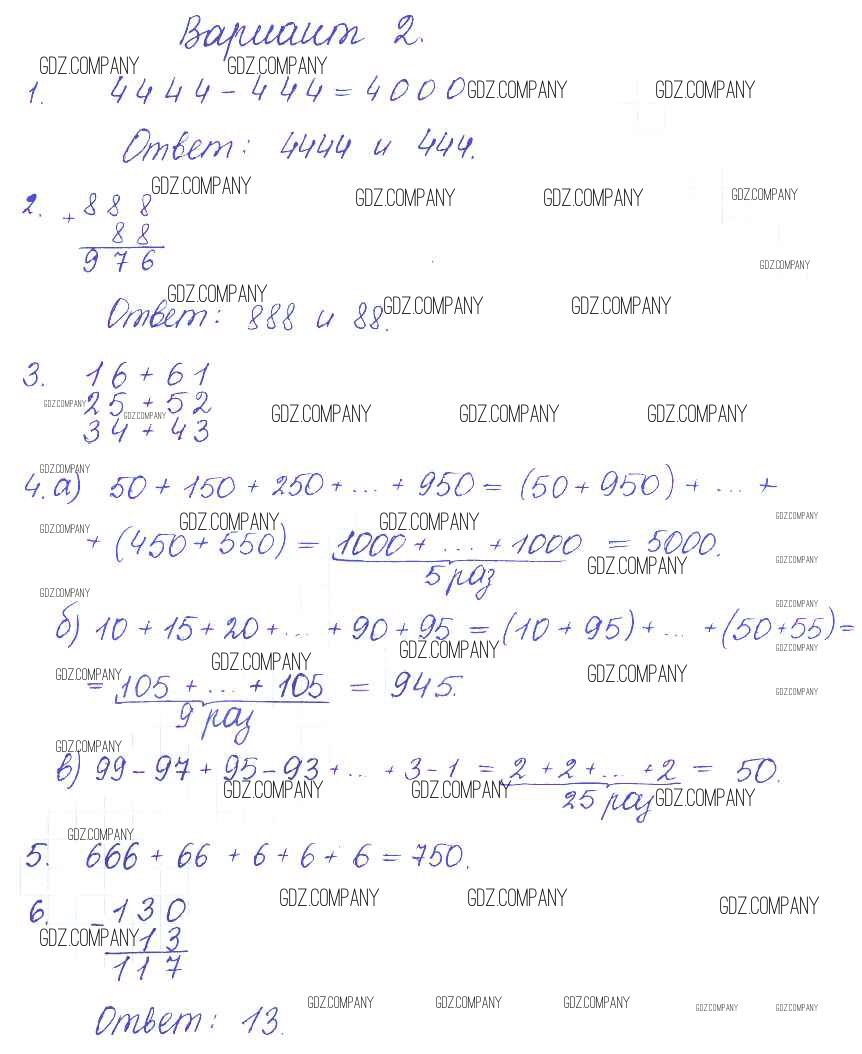 Вариант 2.
GDZ.COMPANY GDZ.COMPANY
1. 4444 - 444 = 4000 GDZ.COMPANY GDZ.COMPANY
Ответ: 4444 и 444.
GDZ.COMPANY GDZ.COMPANY GDZ.COMPANY GDZ.COMPANY
2. + 888
88
976 GDZ.COMPANY
GDZ.COMPANY GDZ.COMPANY GDZ.COMPANY
Ответ: 888 и 88.
3. 16 + 61
GDZ.COMPANY 25 + 52 GDZ.COMPANY GDZ.COMPANY GDZ.COMPANY GDZ.COMPANY
34 + 43
GDZ.COMPANY
4. а) 50 + 150 + 250 + ... + 950 = (50 + 950) + ... +
GDZ.COMPANY GDZ.COMPANY GDZ.COMPANY GDZ.COMPANY
+ (450 + 550) = 1000 + ... + 1000 = 5000.
5 раз GDZ.COMPANY GDZ.COMPANY
GDZ.COMPANY GDZ.COMPANY
б) 10 + 15 + 20 + ... + 90 + 95 = (10 + 95) + ... + (50 + 55) =
GDZ.COMPANY GDZ.COMPANY GDZ.COMPANY GDZ.COMPANY GDZ.COMPANY
= 105 + ... + 105 = 945. GDZ.COMPANY
9 раз
GDZ.COMPANY
в) 99 - 97 + 95 - 93 + ... + 3 - 1 = 2 + 2 + ... + 2 = 50.
GDZ.COMPANY GDZ.COMPANY 25 раз GDZ.COMPANY
GDZ.COMPANY
5. 666 + 66 + 6 + 6 + 6 = 750.
GDZ.COMPANY GDZ.COMPANY GDZ.COMPANY
6. - 130
GDZ.COMPANY 13
117
GDZ.COMPANY GDZ.COMPANY GDZ.COMPANY GDZ.COMPANY GDZ.COMPANY
Ответ: 13.